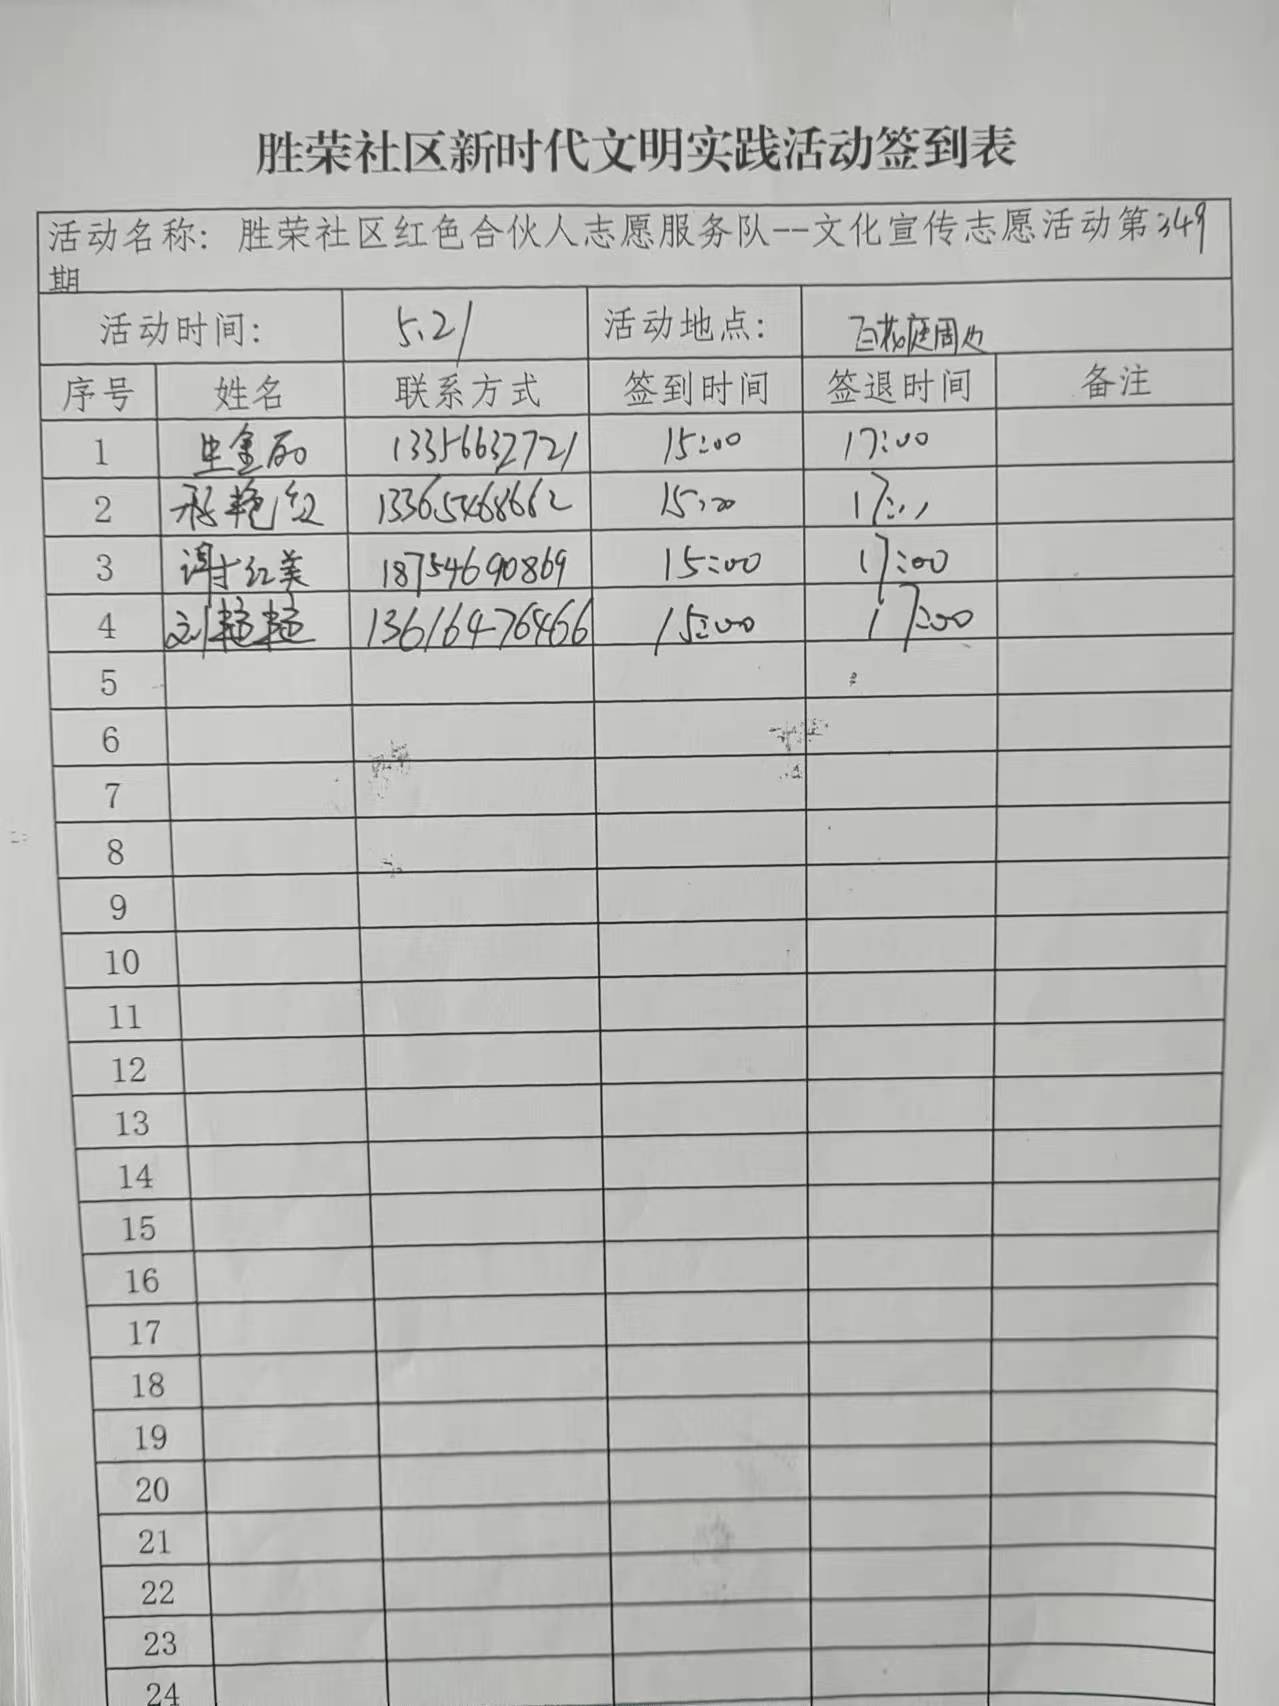 胜荣社区新时代文明实践活动签到表
活动名称: 胜荣社区红色合伙人志愿服务队--文化宣传志愿活动第349
期
活动时间: 5.21 活动地点: 百花庭周边
序号 姓名 联系方式 签到时间 签退时间 备注
1 13356632721 15:00 17:00
2 艳红 13365468662 15:00 17:00
3 谢红美 18754690869 15:00 17:00
4 刘艳艳 13616476466 15:00 17:00
5
6
7
8
9
10
11
12
13
14
15
16
17
18
19
20
21
22
23
24